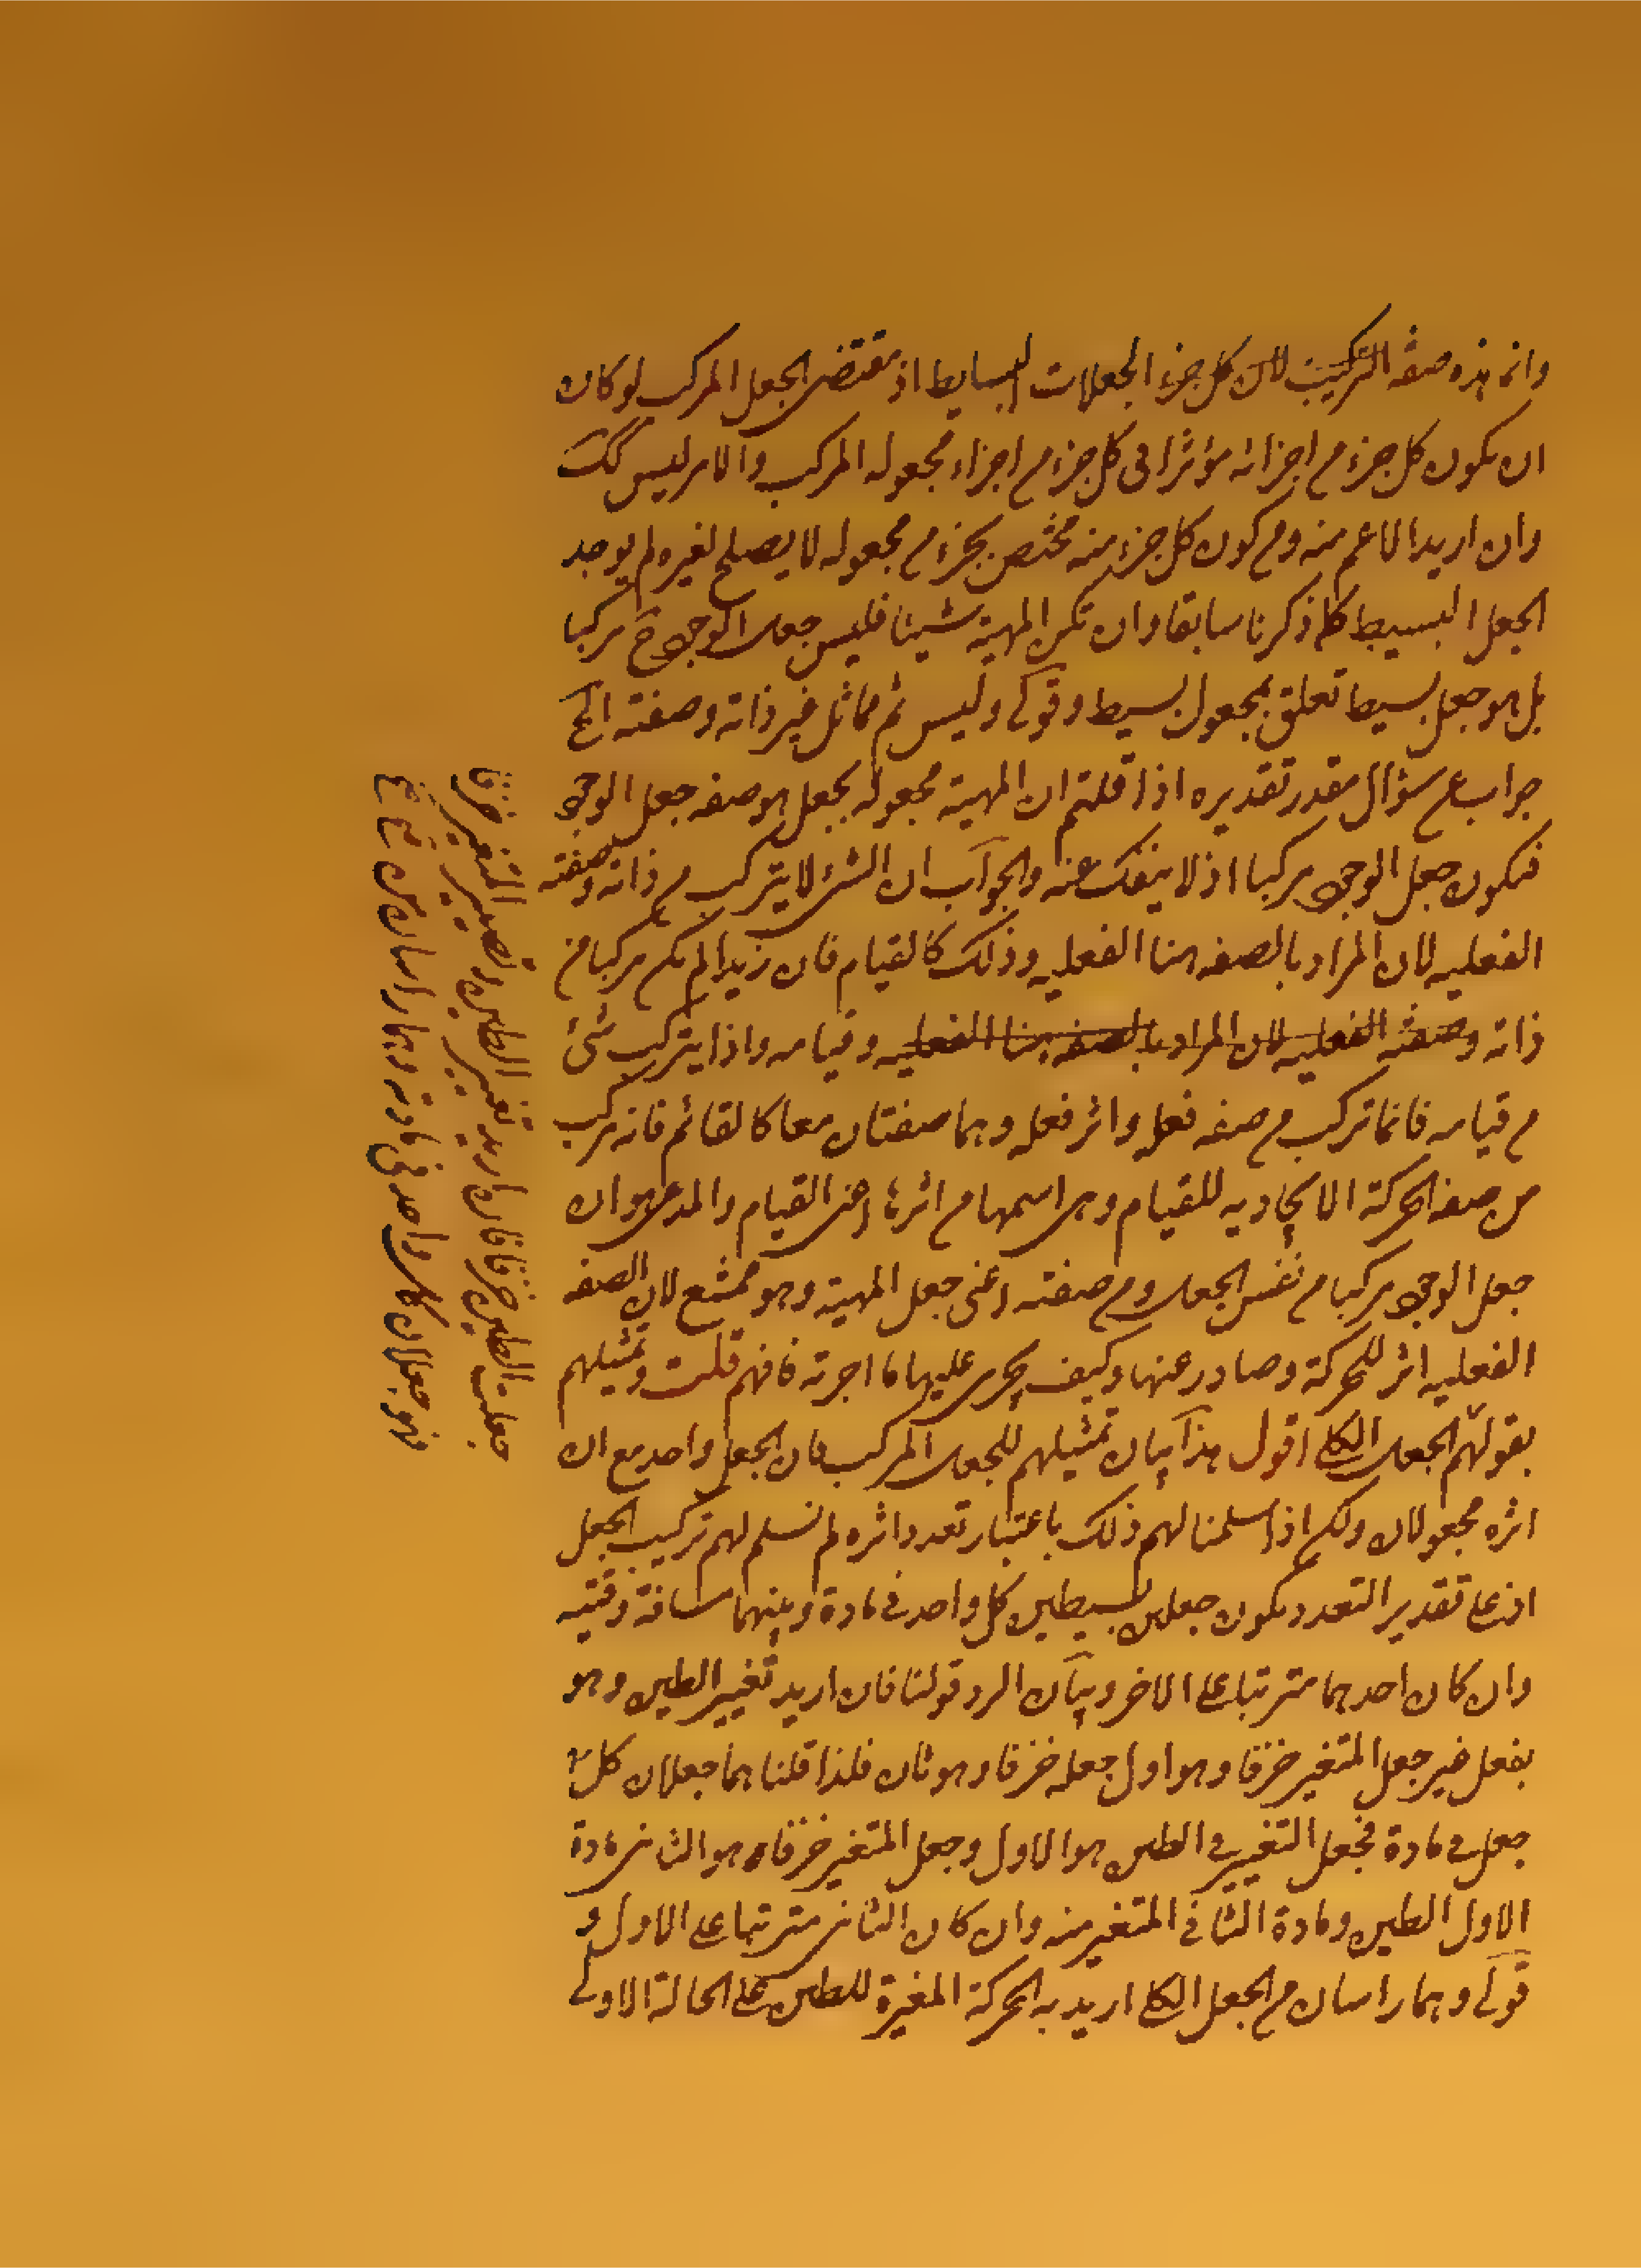 وانما هذه صفة التركيب لان كل جزء الجعلات البسايط اذ مقتضى الجعل المركب لو كان
ان يكون كل جزء من اجزائه مؤثرا فى كل جزء من اجزاء مجعوله المركب والامر ليس كك
وان اريد الاعم منه ومن كون كل جزء منه مختص بجزء من مجعوله لا يصلح لغيره لم يوجد
الجعل البسيط كما ذكرنا سابقا وان تكن المهية شيئا فليس جعل الوجود ح مركبا
بل هو جعل بسيط تعلق بمجعول بسيط وقولى وليس ثم مماثل غير ذاته وصفته الخ
جواب عن سؤال مقدر تقديره اذا قلتم ان المهية مجعولة بجعل هو صفة جعل الوجود
فيكون جعل الوجود مركبا اذ لا ينفك عنه والجواب ان الشئ لا يتركب من ذاته وصفته
الفعليه لان المراد بالصفه هنا الفعليه وذلك كالقيام فان زيدا لم يكن مركبا من
ذاته وصفته الفعليه لان المراد بالصفه هنا الفعليه وقيامه واذا يتركب شئ
من قيامه فانما تركب من صفه فعله واثر فعله وهما صفتان معا كالقائم فانه مركب
من صفة الحركة الايجاديه للقيام وهى اسمها من اثرها اعنى القيام والمدعى هو ان
جعل الوجود مركبا من نفس الجعل ومن صفته اعنى جعل المهية وهو ممتنع لان الصفه
الفعليه اثر للحركة وصادر عنها وكيف يجرى عليها ما اجرته فافهم قلت وتمثيلهم
بقولهم الجعل الخ اقول هذا بيان تمثيلهم للجعل المركب فان الجعل واحد مع ان
اثره مجعولان ولكن اذا سلمنا لهم ذلك باعتبار تعدد اثره لم نسلم لهم تركيب الجعل
اذ على تقدير التعدد يكون جعلين بسيطين كل واحد فى مادة وبينهما مسافة وقتيه
وان كان احدهما مترتبا على الاخر وبيان الرد قولنا فان اريد تغيير الطين وهو
بفعل غير جعل المتغير خزفا وهو اول جعله خزفا وهو ثان فلذا قلنا هما جعلان كل
جعل فى مادة فجعل التغيير فى الطين هو الاول وجعل المتغير خزفا هو الثانى مادة
الاول الطين ومادة الثانى المتغير منه وان كان الثانى مترتبا على الاول و
قولى وهما راسان من الجعل الخ اريد به الحركة المغيرة للطين على الحالة الاولى
جعلت الطين خزفا فان اريد تغيير الطين او تصيير المتغير خزفا
فهو جعلان كل واحد فى مادته وهما راسان من